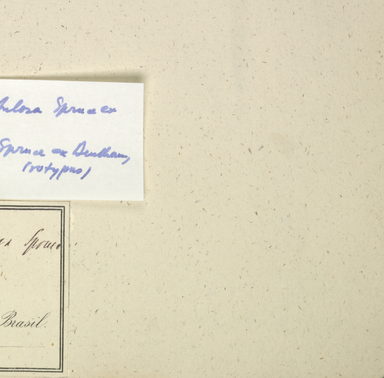 Spruce ex
Spruce ex Bentham,
(isotypus)
Spruce
Brasil.